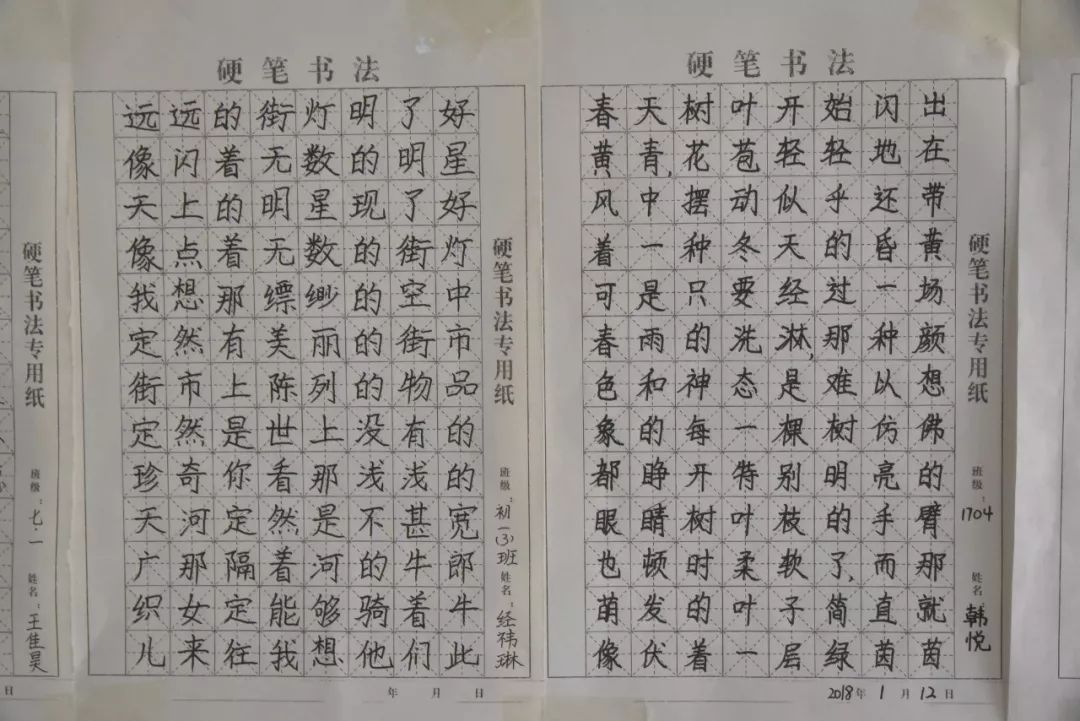 硬笔书法
远远的街灯明了好
像闪着无数的明星
天上的明星现了好
像点着无数的街灯
我想那缥缈的空中
定然有美丽的街市
街市上陈列的物品
定然是世上没有的
珍奇你看那浅浅的
天河定然是不甚宽
广那隔着河的牛郎
织女定能够骑着牛
儿来往我想他们此
硬笔书法专用纸
班级：初一(3)班
姓名：经祎琳
年 月 日
硬笔书法
春天树叶开始闪出
黄青,花苞轻轻地在
风中摆动似乎还带
着一种冬天的昏黄
可是只要经过一场
春雨的洗淋,那种颜
色和神态是难以想
象的每一棵树仿佛
都睁开特别明亮的
眼睛树叶枝的手臂
也顿时柔软了,而那
萌发的叶子简直就
像伏着一层绿茵茵
硬笔书法专用纸
班级：1704
姓名 韩悦
2018年1月12日
硬笔书法专用纸
班级：七·一
姓名：王佳昊
日